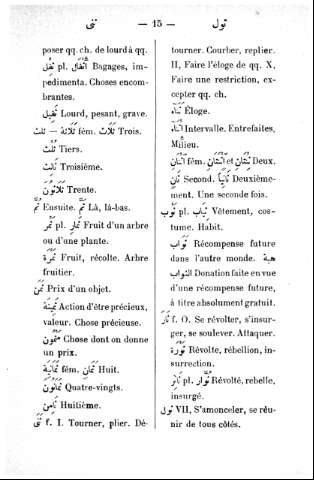 ثنى — 15 — ثول
poser qq. ch. de lourd à qq.
ثقل pl. اثقال Bagages, im-
pedimenta. Choses encom-
brantes.
ثقيل Lourd, pesant, grave.
ثلث — ثلاثة fém. ثلاث Trois.
ثلث Tiers.
ثالث Troisième.
ثلاثون Trente.
ثم Ensuite. ثم Là, là-bas.
ثمر pl. ثمار Fruit d'un arbre
ou d'une plante.
ثمرة Fruit, récolte. Arbre
fruitier.
ثمن Prix d'un objet.
Action d'être précieux,
valeur. Chose précieuse.
Chose dont on donne
un prix.
ثمانية fém. ثمان Huit.
ثمانون Quatre-vingts.
ثامن Huitième.
ثنى f. I. Tourner, plier. Dé-
tourner. Courber, replier.
II, Faire l'éloge de qq. X,
Faire une restriction, ex-
cepter qq. ch.
ثناء Éloge.
اثناء Intervalle. Entrefaites,
Milieu.
اثنان et اثنتان fém. Deux.
ثان Second. ثانيا Deuxième-
ment. Une seconde fois.
ثوب pl. ثياب Vêtement, cos-
tume. Habit.
ثواب Récompense future
dans l'autre monde. هبة
الثواب Donation faite en vue
d'une récompense future,
à titre absolument gratuit.
ثار f. O. Se révolter, s'insur-
ger, se soulever. Attaquer.
ثورة Révolte, rébellion, in-
surrection.
ثائر pl. ثوار Révolté, rebelle,
insurgé.
ثول VII, S'amonceler, se réu-
nir de tous côtés.